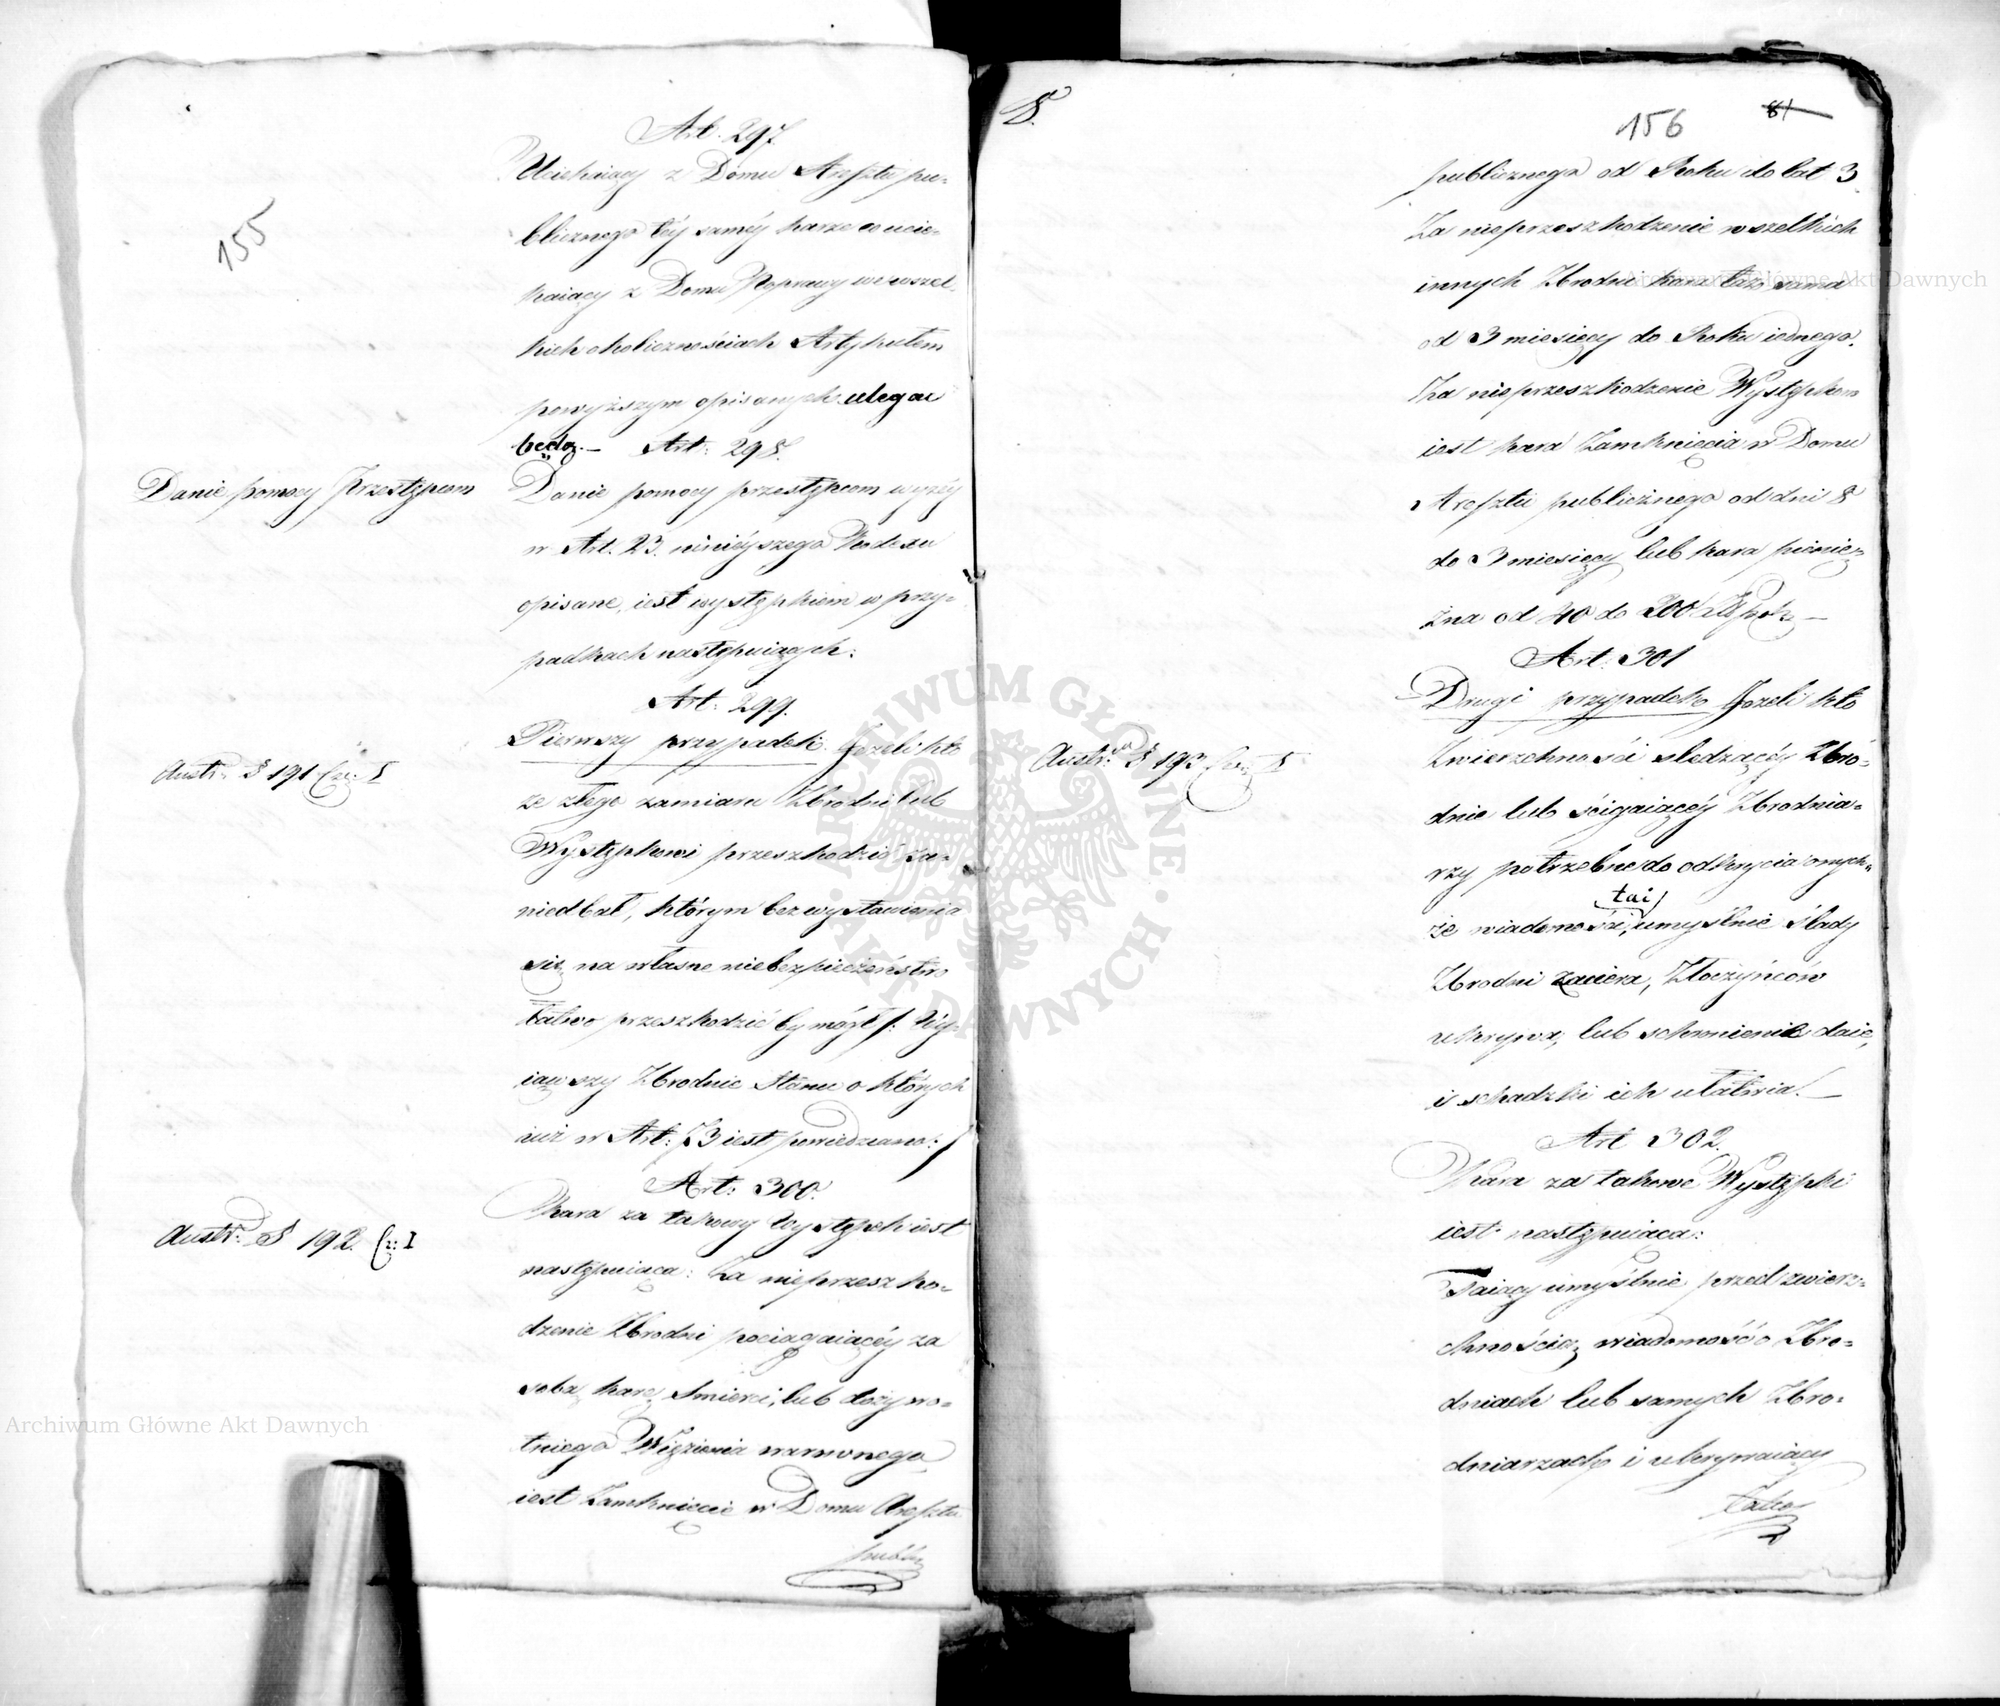 155
Art. 297.
Uciekaiący z Domu Aresztu pu-
blicznego téy saméy karze co ucie-
kaiący z Domu Poprawy we wszel-
kich okolicznościach Artykułem
powyższym opisanych ulegać
będą.— Art: 298.
Danie pomocy Przestępcom
Danie pomocy przestępcom wyżéy
w Art. 23. ninieyszego Kodexu
opisane, iest występkiem w przy-
padkach następuiących:
Art: 299.
Pierwszy przypadek. Jeżeli kto
Austr: § 191 Cz: I
ze złego zamiaru Zbrodni lub
Występkowi przeszkodzić za-
niedbał, którym bez wystawienia
się na własne niebezpieczeństwo
łatwo przeszkodzić by mógł /: Wy-
iąwszy Zbrodnie Stanu o których
iuż w Art: 73 iest powiedziano: /
Art: 300.
Austr: § 192. Cz: I
Kara za takowy Występek iest
następuiąca: Za nieprzeszko-
dzenie Zbrodni pociągaiącéy za
sobą karę Śmierci, lub dożywo-
tniego Więzienia warownego
iest Zamknięcie w Domu Aresztu
publi
8.
156
81
publicznego od Roku do lat 3.
Za nieprzeszkodzenie wszelkich
innych Zbrodni kara taż sama
od 3 miesięcy do Roku iednego.
Za nieprzeszkodzenie Występkom
iest kara Zamknięcia w Domu
Aresztu publicznego od dni 8
do 3 miesięcy lub kara pienię-
żna od 40 do 200 Złpols.—
Art: 301
Drugi przypadek Jeżeli kto
Austr: § 193 Cz: I
Zwierzchności sledzącéy Zbro-
dnie lub ścigaiącéy Zbrodnia-
rzy potrzebne do odkrycia onych-
że wiadomości, tai, umyślnie ślady
Zbrodni zaciera, Złoczyńców
ukrywa, lub schronienie daie,
i schadzki ich ułatwia.—
Art 302.
Kara za takowe Występki
iest następuiąca:
Taiący umyślnie przed zwierz-
chnością wiadomość o Zbro-
dniach lub samych Zbro-
dniarzach i ukrywaiący
takow
ARCHIWUM GŁÓWNE AKT DAWNYCH
Archiwum Główne Akt Dawnych
Archiwum Główne Akt Dawnych